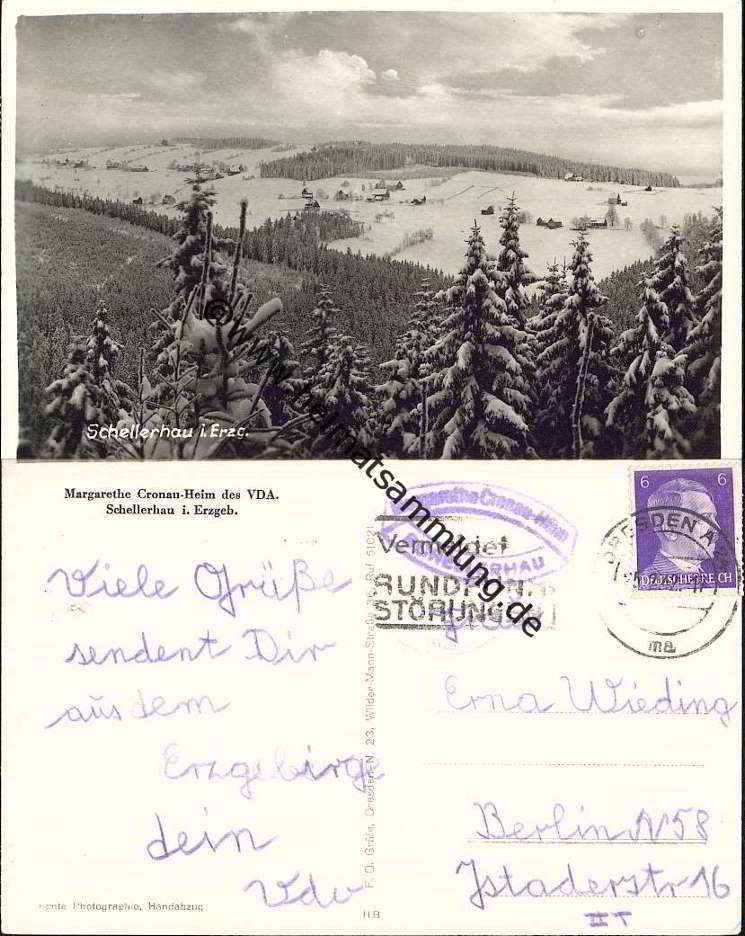 Schellerhau i. Erzg.
© www.heimatsammlung.de
Margarethe Cronau-Heim des VDA.
Schellerhau i. Erzgeb.
Viele Grüße
sendent Dir
aus dem
Erzgebirge
dein
Echte Photographie, Handabzug
F. O. Gräfe, Dresden N. 23, Wilder-Mann-Straße 36, Ruf 51021
H.B
Margarethe Cronau-Heim
SCHELLERHAU
Vermeidet
RUNDFUNK
STÖRUNGEN
6 6
DEUTSCHES REICH
DRESDEN A
ma
Erna Wieding
Berlin N 58
Istaderstr 16
II T